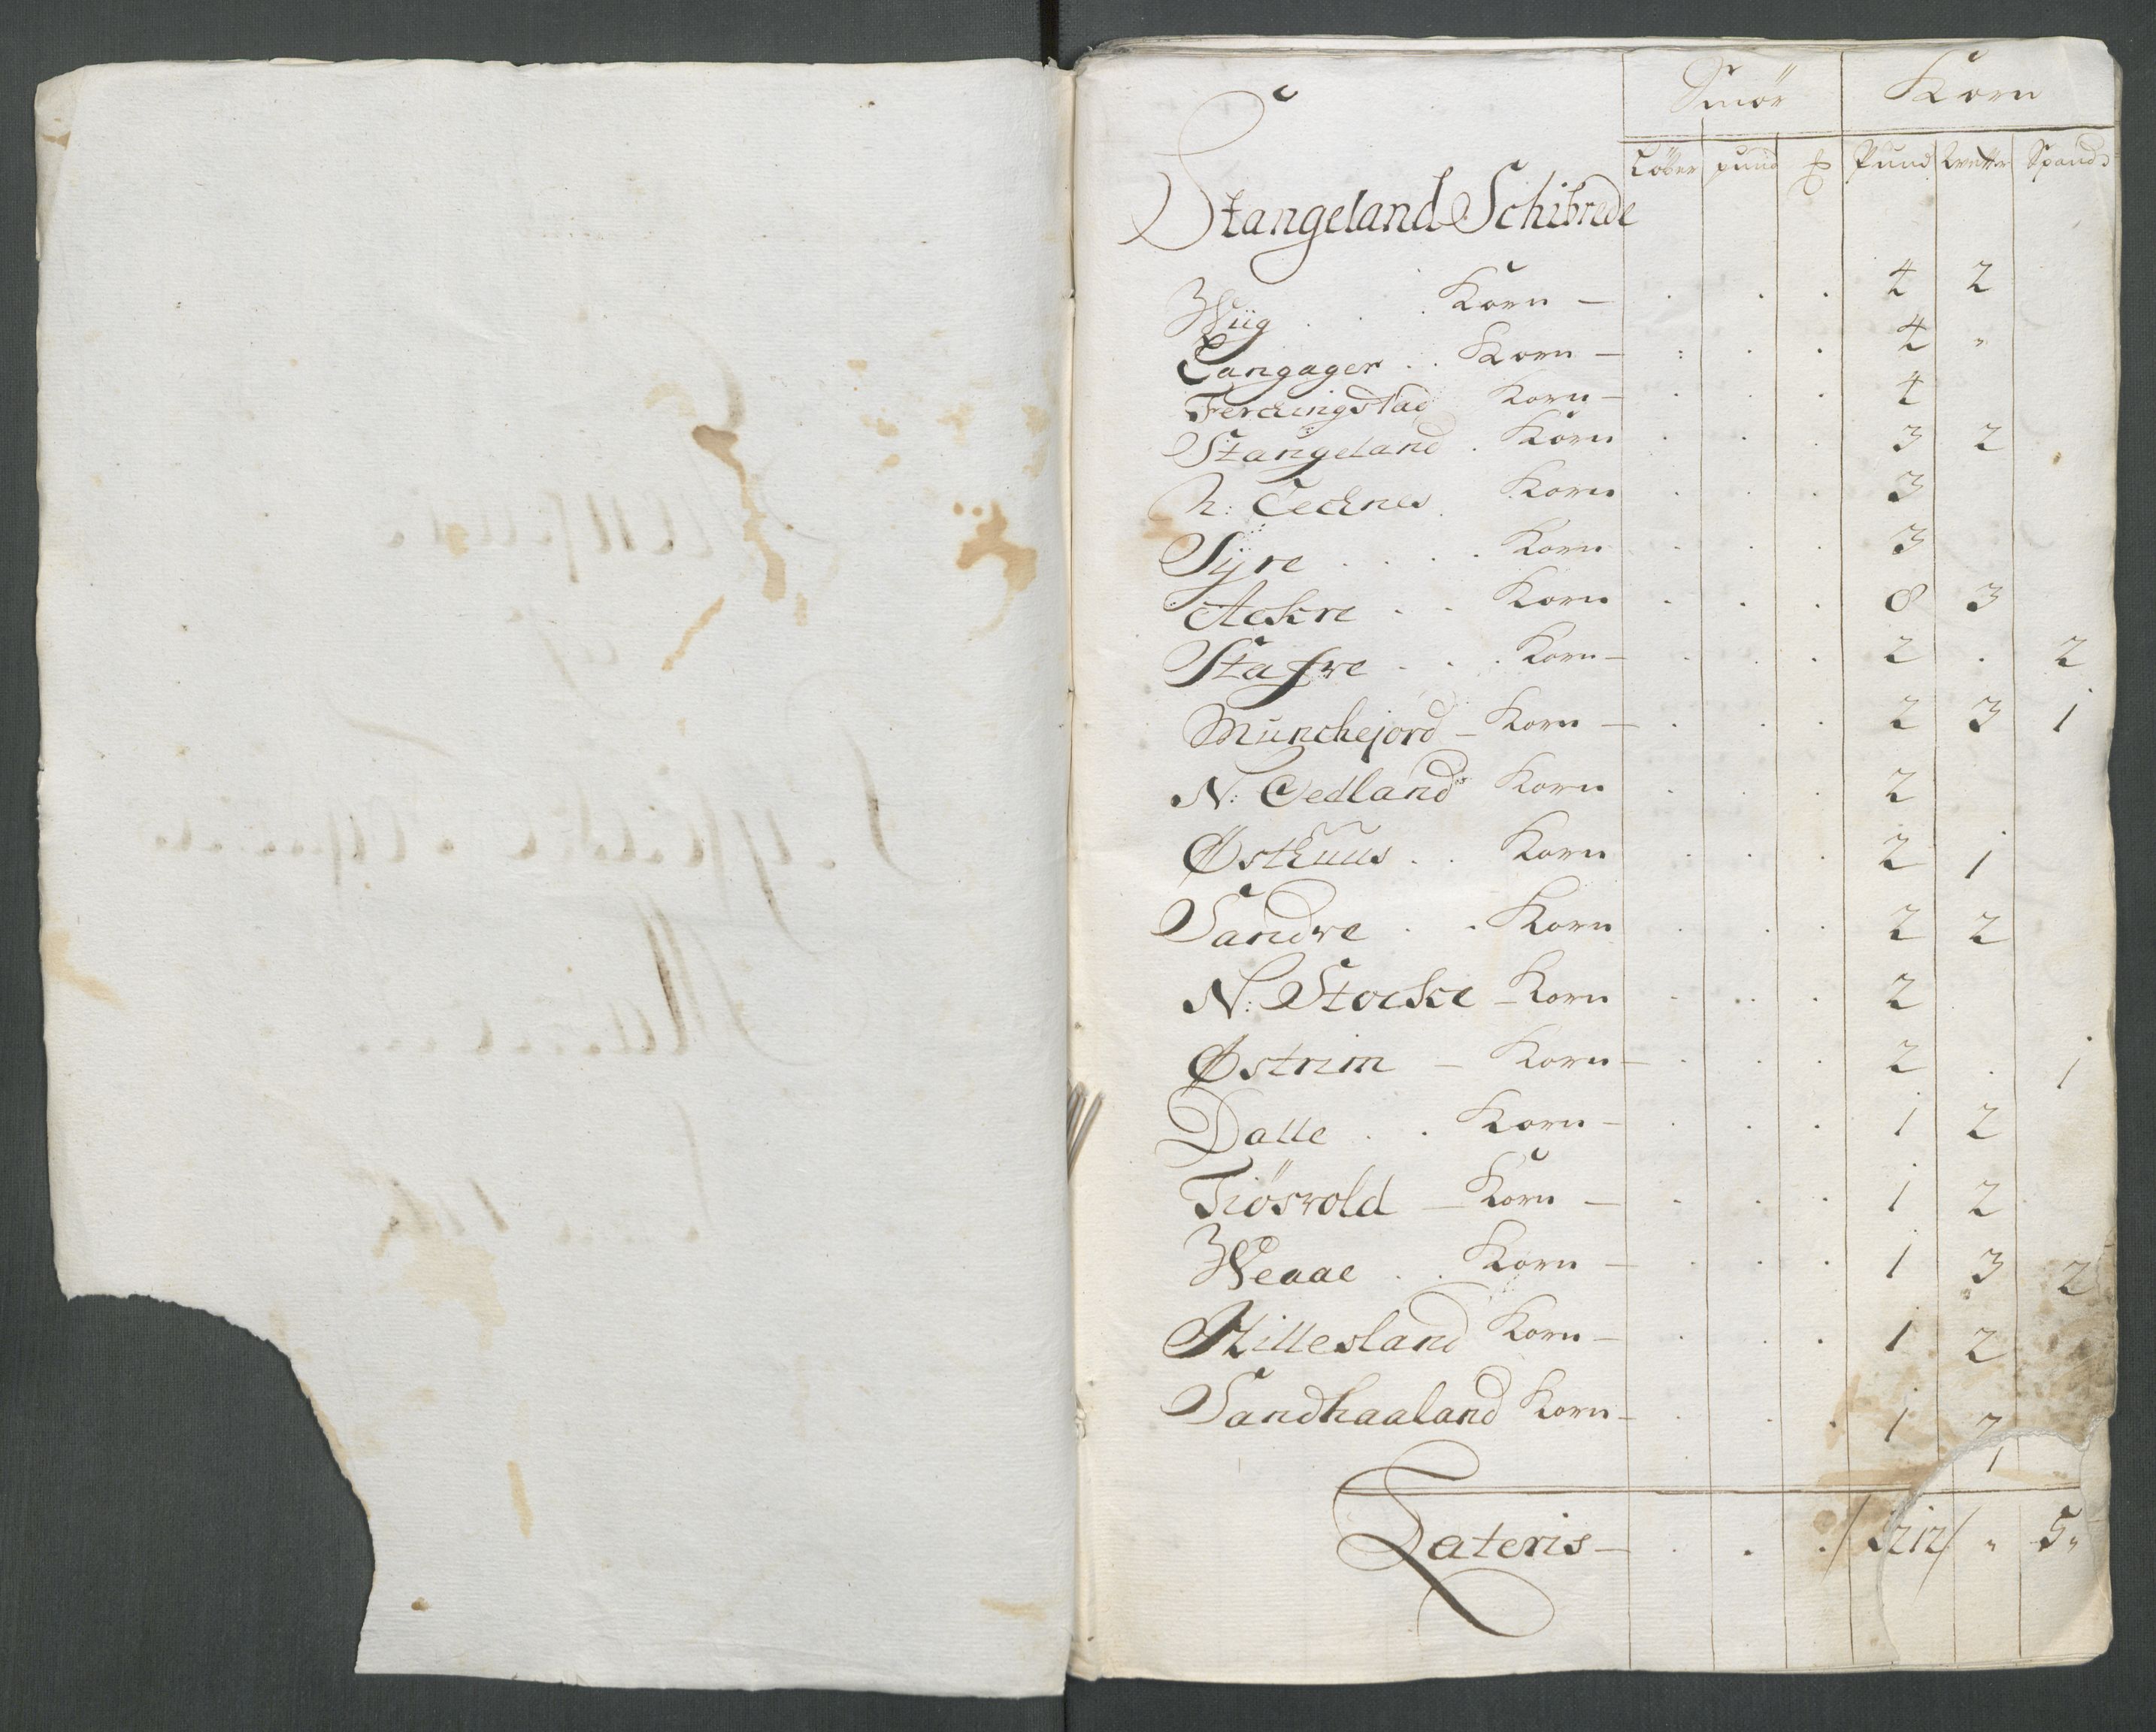 Smör Korn
Löber pund ℔ Pund Wetter Spand
Stangeland Schibrede
Wiig . . . Korn — . . . 4 2
Langager . . Korn — : . . 4 "
Ferchingstad Korn — . . . 4
Stangeland . Korn . . . 3 2
N: Technes Korn . . . 3
Syre . . . . Korn . . . 3
Ackre . . Korn . . . 8 3
Stafre . . . Korn — . . . 2 . 2
Munchejord — Korn — . . . 2 3 1
N: Oedland Korn . . . 2
Østhuus . . Korn . . . 2 1
Sandve . . Korn . . . 2 2
N: Stocke — Korn . . . 2
Østrim — Korn — . . . 2 . 1
Dalle . . Korn — . . . 1 2
Tiösvold — Korn — . . . 1 2
Weaae . . Korn — . . . 1 3 2
Hillesland Korn — . . . 1 2
Sandhaaland Korn — . . . 1 2
1
Lateris — . . . " 5 "